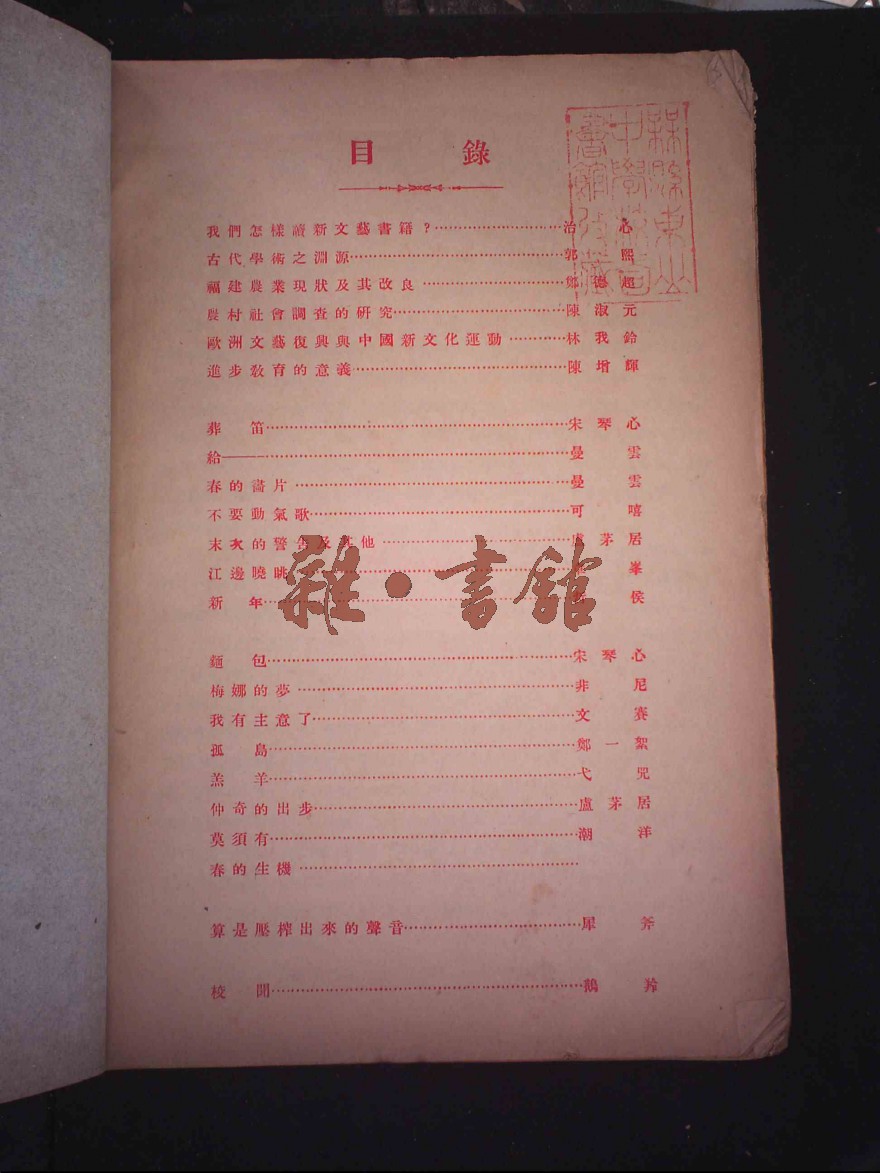 目錄
我們怎樣讀新文藝書籍?……治心
古代學術之淵源……郭熙
福建農業現狀及其改良……鄭德超
農村社會調查的研究……陳淑元
歐洲文藝復興與中國新文化運動……林我鈴
進步敎育的意義……陳增輝
葬笛……宋琴心
給——……曼雲
春的畵片……曼雲
不要動氣歌……可嘻
末次的警告及其他……盧茅居
江邊曉眺……峯
新年……侯
麵包……宋琴心
梅娜的夢……非尼
我有主意了……文賽
孤島……鄭一絮
羔羊……弋咒
仲奇的出步……盧茅居
莫須有……潮洋
春的生機……
算是壓榨出來的聲音……犀斧
校聞……鵝羚
雜·書館